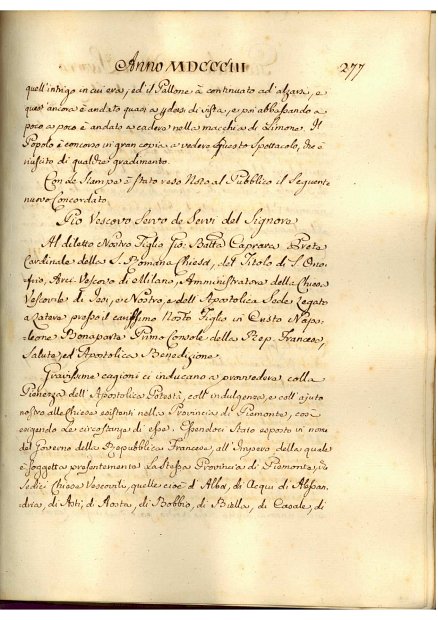 Anno MDCCCIII 277
quell'intrigo in cui era, ed il Pallone à continuato ad alzarsi, e
quasi ancora è andato quasi a perdersi di vista, e poi abbassando a
poco a poco è andato a cadere nella macchia di Limone. Il
Popolo è concorso in gran copia a vedere questo Spettacolo, che è
riuscito di qualche gradimento.
Con le Stampe è stato reso Noto al Pubblico il Seguente
nuovo Concordato.
Pio Vescovo Servo de Servi del Signore
Al diletto Nostro Figlio Gio: Batta Caprara Prete
Cardinale della S. Romana Chiesa, del Titolo di S. Ono-
frio, Arci-Vescovo di Milano, Amministratore della Chiesa
Vescovile di Jesi, e Nostro, e dell'Apostolica Sede Legato
a Latere presso il carissimo Nostro Figlio in Cristo Napo-
leone Bonaparte Primo Console della Rep. Francese,
Salute, ed Apostolica Benedizione.
Gravissime cagioni ci inducano a provvedere colla
Pienezza dell'Apostolica Potestà, coll'indulgenza, e coll'ajuto
nostro alle Chiese esistenti nella Provincia di Piemonte, così
esigendo le circostanze di esse. Essendoci stato esposto in nome
del Governo della Repubblica Francese, all'Impero della quale
è soggetta presentemente la Stessa Provincia di Piemonte,
Sedici Chiese Vescovili, quelle cioè d'Alba, di Acqui di Alessan-
dria, di Asti, di Aosta, di Bobbio, di Biella, di Casale, di